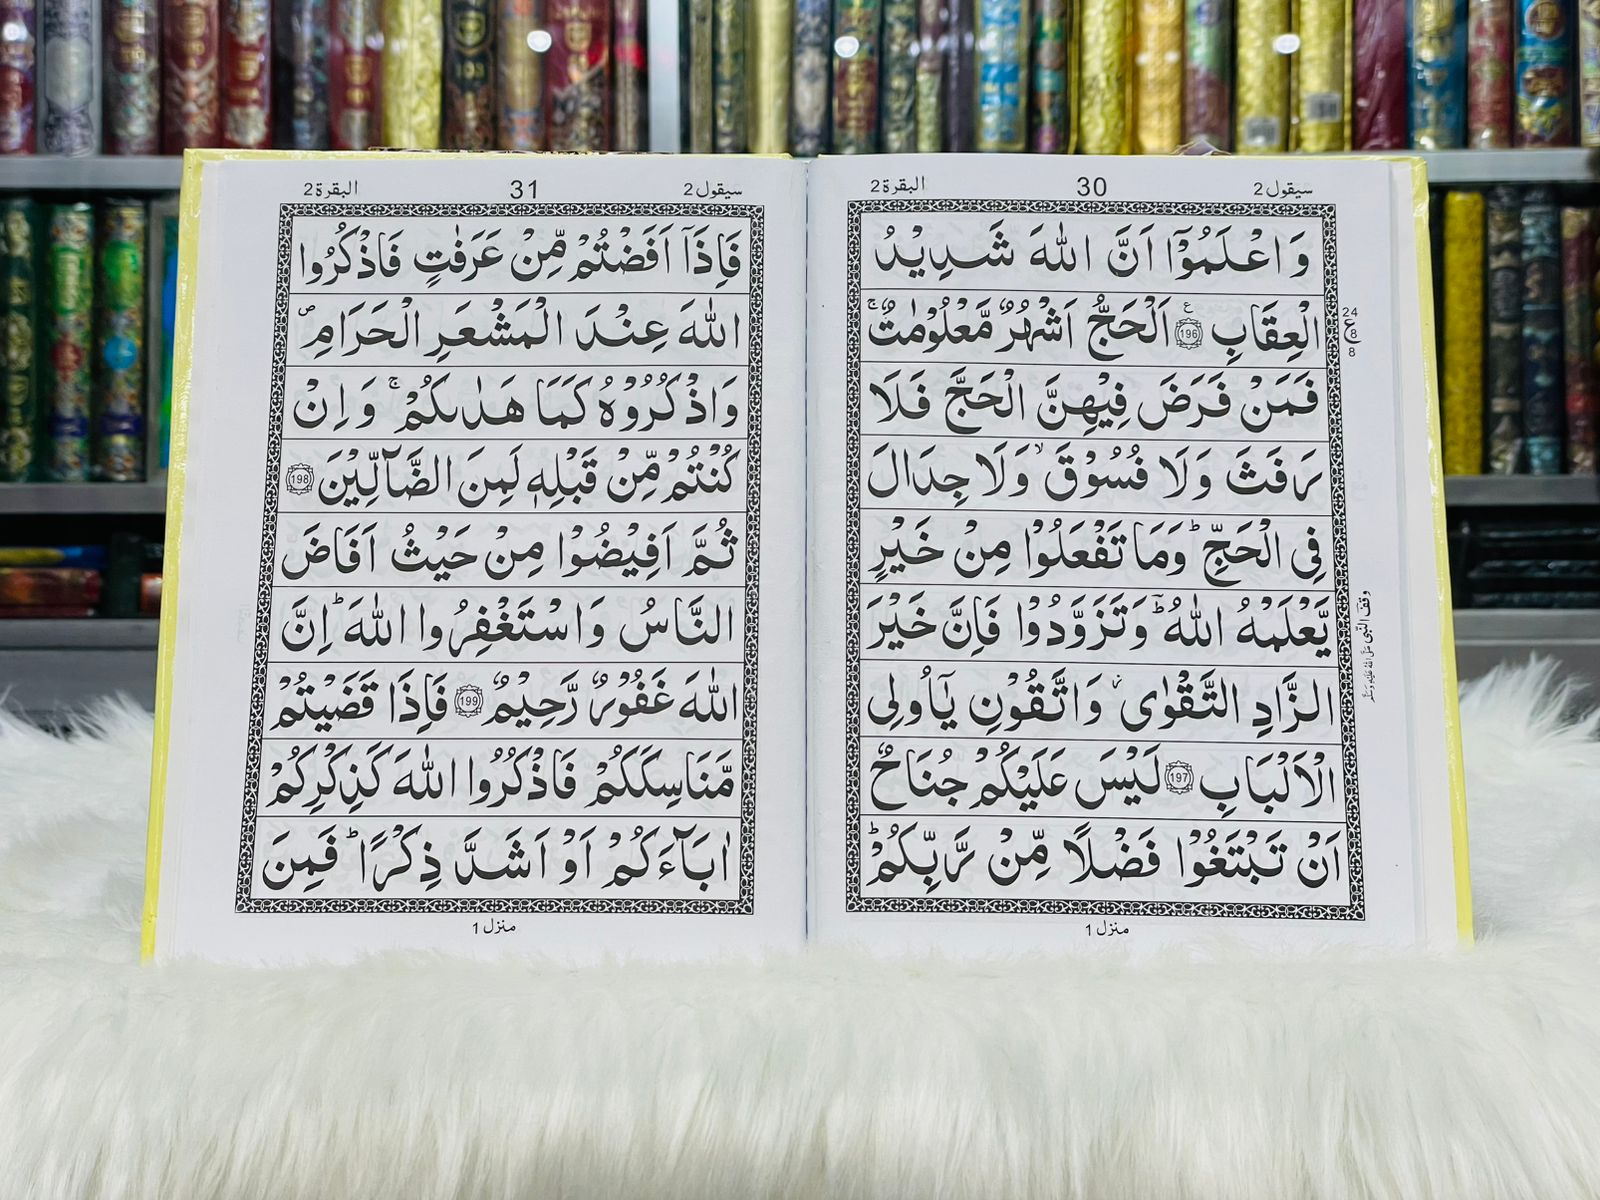 سيقول 2
30
البقرة 2
وَاعْلَمُوْۤا اَنَّ اللّٰهَ شَدِيْدُ
الْعِقَابِ ۧ 196 اَلْحَجُّ اَشْهُرٌ مَّعْلُوْمٰتٌ ۚ
فَمَنْ فَرَضَ فِيْهِنَّ الْحَجَّ فَلَا
رَفَثَ وَلَا فُسُوْقَ ۙ وَلَا جِدَالَ
فِى الْحَجِّ ؕ وَمَا تَفْعَلُوْا مِنْ خَيْرٍ
يَّعْلَمْهُ اللّٰهُ ؔؕ وَتَزَوَّدُوْا فَاِنَّ خَيْرَ
الزَّادِ التَّقْوٰى ۫ وَاتَّقُوْنِ يٰۤاُولِى
الْاَلْبَابِ 197 لَيْسَ عَلَيْكُمْ جُنَاحٌ
اَنْ تَبْتَغُوْا فَضْلًا مِّنْ رَّبِّكُمْ ؕ
24
ع
8
8
وقف النبى صلى الله عليه وسلم
منزل 1
سيقول 2
31
البقرة 2
فَاِذَاۤ اَفَضْتُمْ مِّنْ عَرَفٰتٍ فَاذْكُرُوا
اللّٰهَ عِنْدَ الْمَشْعَرِ الْحَرَامِ ۪
وَاذْكُرُوْهُ كَمَا هَدٰىكُمْ ۚ وَاِنْ
كُنْتُمْ مِّنْ قَبْلِهٖ لَمِنَ الضَّآلِّيْنَ 198
ثُمَّ اَفِيْضُوْا مِنْ حَيْثُ اَفَاضَ
النَّاسُ وَاسْتَغْفِرُوا اللّٰهَ ؕ اِنَّ
اللّٰهَ غَفُوْرٌ رَّحِيْمٌ 199 فَاِذَا قَضَيْتُمْ
مَّنَاسِكَكُمْ فَاذْكُرُوا اللّٰهَ كَذِكْرِكُمْ
اٰبَآءَكُمْ اَوْ اَشَدَّ ذِكْرًا ؕ فَمِنَ
منزل 1